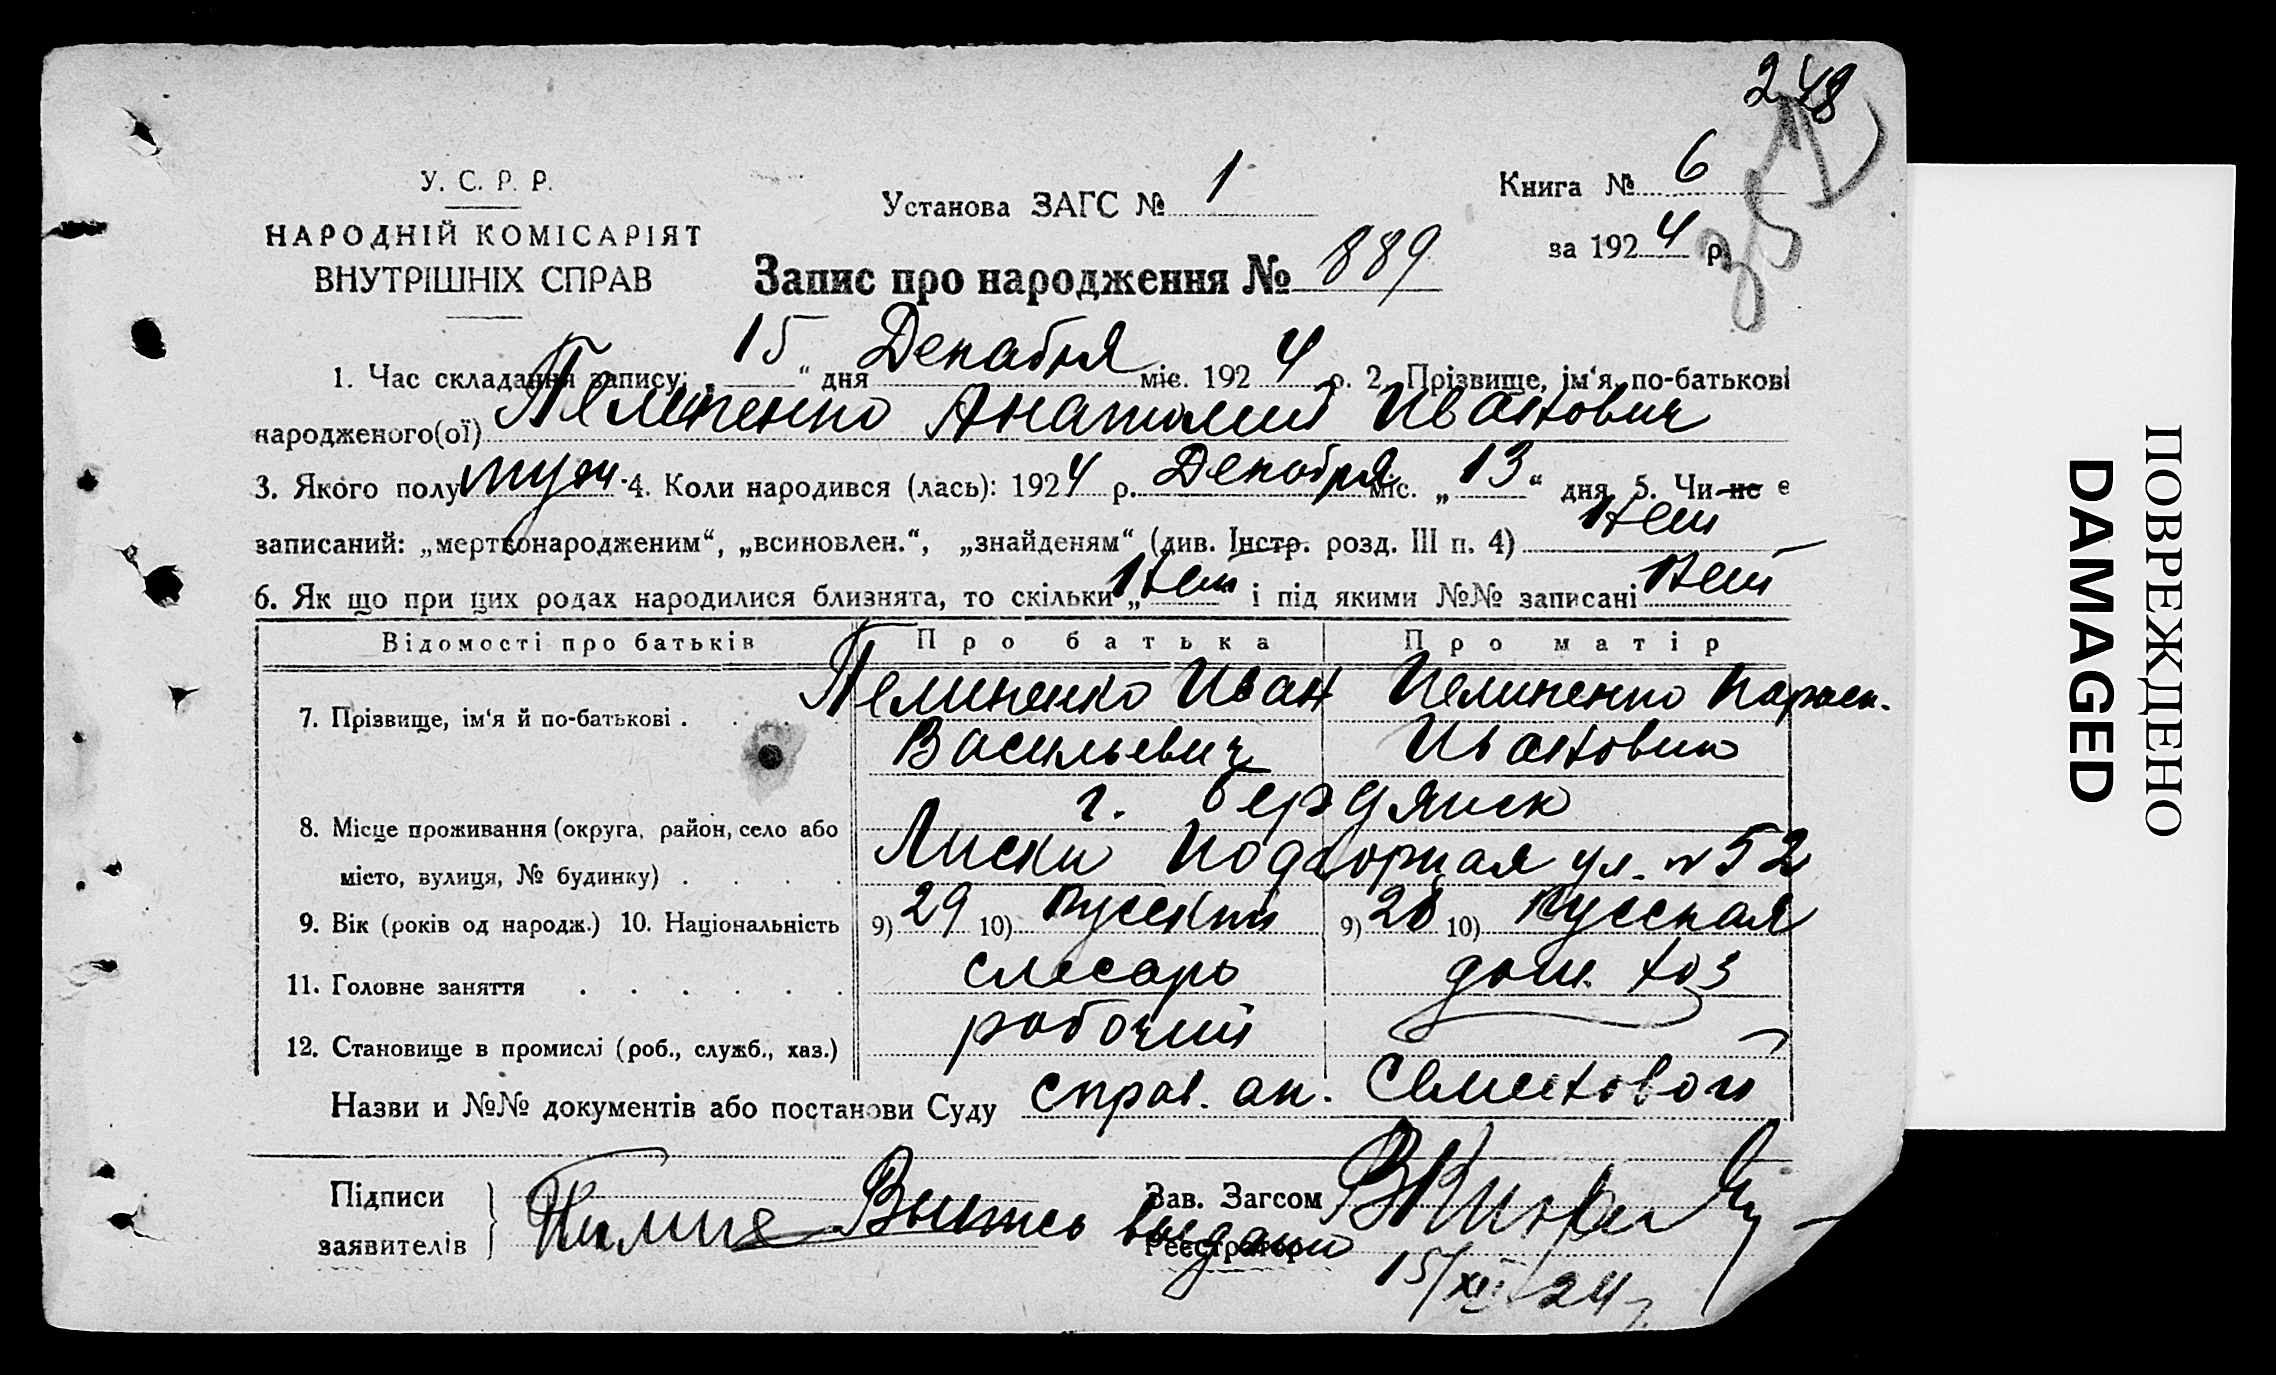 248
У. С. Р. Р.
НАРОДНІЙ КОМІСАРІЯТ
ВНУТРІШНІХ СПРАВ
Установа ЗАГС № 1
Книга № 6
за 1924 р.
Запис про народження № 889
1. Час складання запису: „15“ дня Декабря міс. 1924 р. 2. Прізвище, ім‘я, по-батькові
народженого(ої) Пелипенко Анатолий Иванович
3. Якого полу муж. 4. Коли народився (лась): 1924 р. Декабря міс. „13“ дня 5. Чи не є
записаний: „мертвонародженим“, „всиновлен.“, „знайденям“ (див. Інстр. розд. III п. 4) нет
6. Як що при цих родах народилися близнята, то скільки „нет“ і під якими №№ записані нет
Відомості про батьків Про батька Про матір
7. Прізвище, ім‘я й по-батькові . Пелипенко Иван Пелипенко Параск.
Васильевич Ивановна
г. Бердянск
8. Місце проживання (округа, район, село або
місто, вулиця, № будинку) . . . . Лиски Подгорная ул. № 52
9. Вік (років од народж.) 10. Національність 9) 29 10) Русский 9) 28 10) Русская
11. Головне заняття . . . . . . слесарь дом. хоз
12. Становище в промислі (роб., служб., хаз.) рабочий
Назви и №№ документів або постанови Суду справ. ак. Семеновой
Підписи
заявителів
Зав. Загсом
Выпись выдана
Реестратор
15/XII 24
ПОВРЕЖДЕНО
DAMAGED